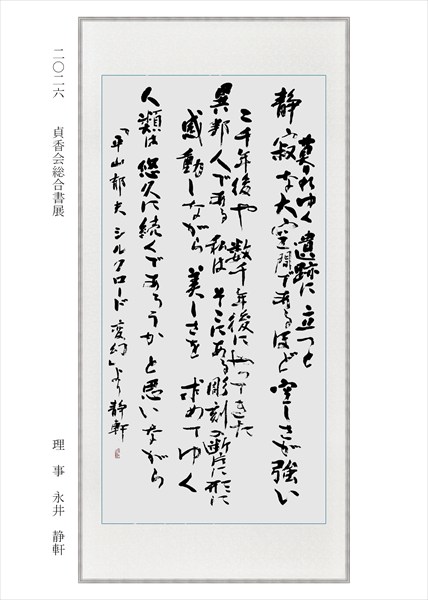 暮れゆく遺跡に立つと
静寂な大空間であるほど空しさが強い
二千年後や数千年後にやってきた
異邦人である私はそこにある彫刻の断片に形に
感動しながら美しさを求めてゆく
人類は悠久に続くであろうかと思いながら
「平山郁夫シルクロード変幻」より静軒
二〇二六 貞香会総合書展
理事 永井 静軒